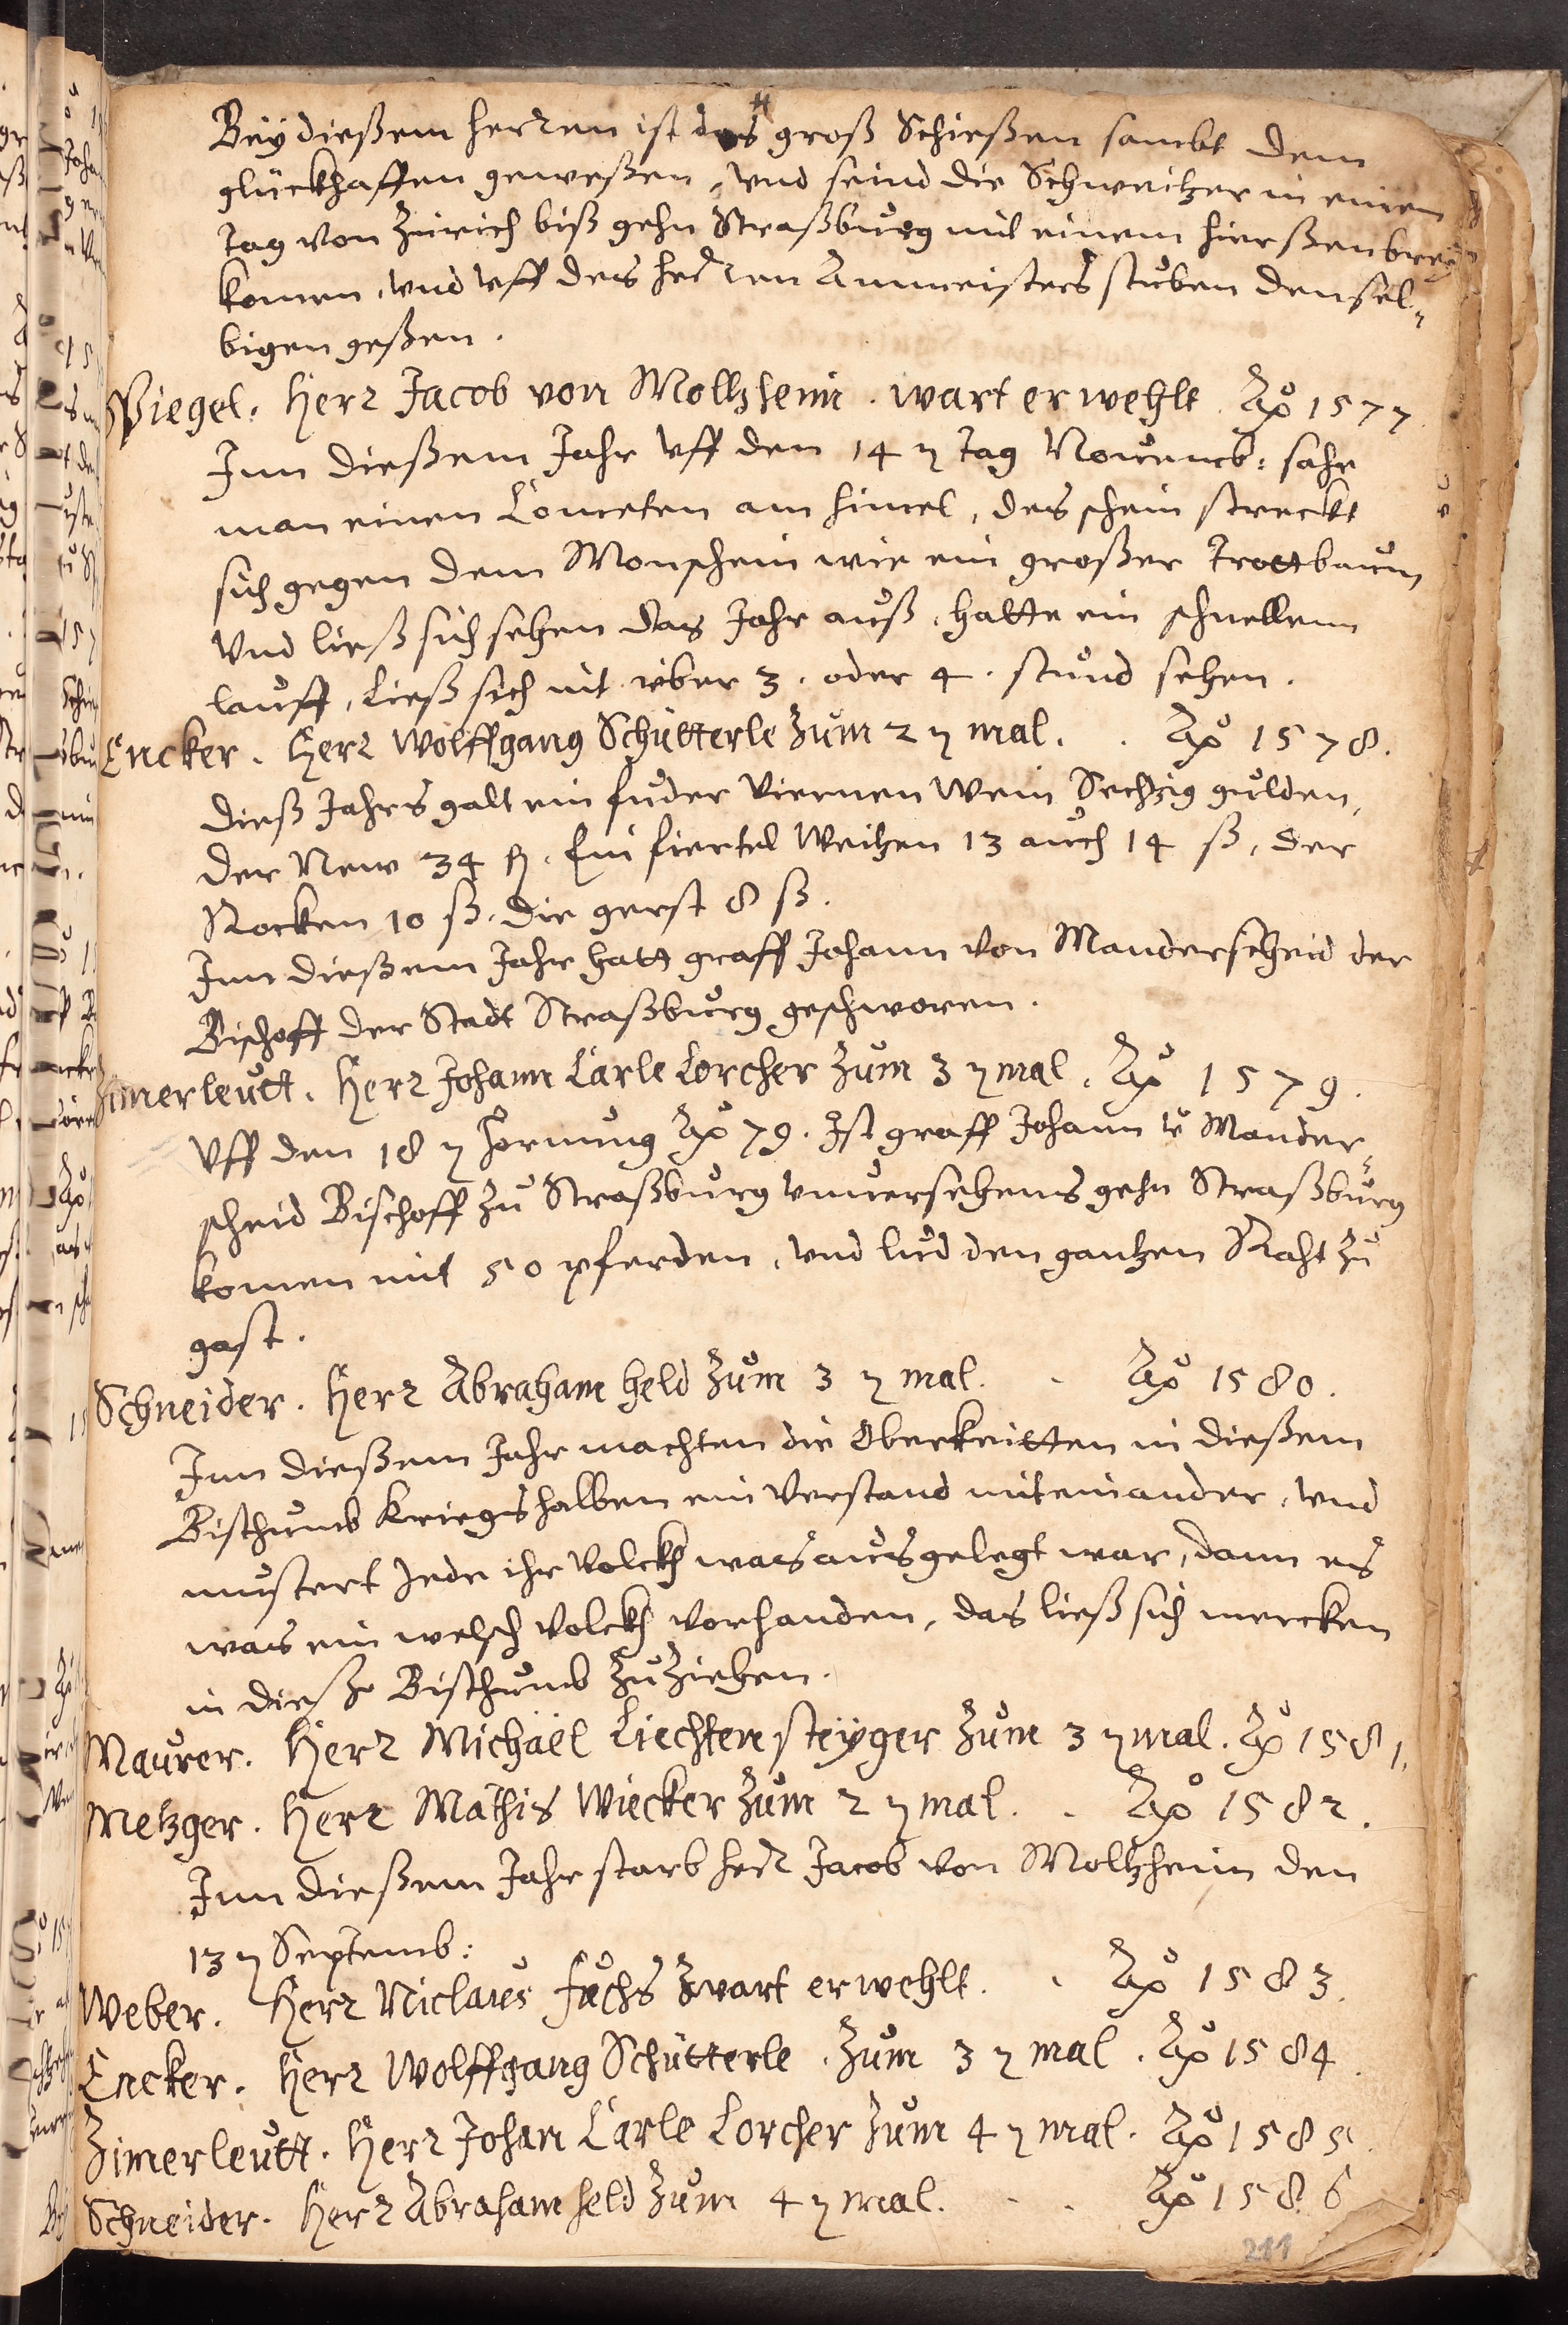 Bey dießem herren ist das groß Schießen sambt dem
glückhaffen geweßen, vnd seind die Schweitzer in einem
tag von Zürich biß gehn Straßburg mit einem hierßenbrey
komen, vnd vff des herren Ammeisters stuben densel-
bigen geßen.
Spiegel. Herr Jacob von Moltzheim. wart erwehlt. Aõ 1577.
Inn dießem Jahr vff den 14 n tag Nouemb: sahe
man einen Cometen am himel, des schein streckt
sich gegen dem Monschein wie ein großer trottbaum
vnd ließ sich sehen das Jahr auß, hatte ein schnellenn
lauff, ließ sich nit über 3. oder 4. stund sehen.
Encker. Herr Wolffgang Schütterle zum 2 n mal. Aõ 1578.
dieß Jahrs galt ein fuder viernen Wein Sechzig gulden,
der New 34 fl. Ein fiertel Weitzen 13 auch 14 ß, der
Rocken 10 ß. die gerst 8 ß.
Inn dießem Jahr hatt graff Johann von Manderscheid der
Bischoff der Stadt Straßburg geschworen.
Zimerleutt. Herr Johann Carle Lorcher zum 3 n mal. Aõ 1579.
Vff den 18 n Hornung Aõ 79. Ist graff Johann v Mander-
scheid Bischoff zu Straßburg vnuersehens gehn Straßburg
komen mit 50 pferden, vnd lud den gantzen Raht zu
gast.
Schneider. Herr Abraham Held zum 3 n mal. Aõ 1580.
Inn dießem Jahr machten die Oberkeitten in dießem
Bisthumb Kriegshalben ein Verstand miteinander, vnd
mustert Jede ihr Volckh was ausgelegt war, dann es
was ein welsch Volckh vorhanden, das ließ sich mercken
in dieße Bisthumb zu ziehen.
Maurer. Herr Michäel Liechtensteyger zum 3 n mal. Aõ 1581.
Metzger. Herr Mathis Wiecker zum 2 n mal. Aõ 1582.
Inn dießem Jahr starb herr Jacob von Moltzheim den
13 n Septemb:
Weber. Herr Niclaus Fuchs wart erwehlt. Aõ 1583.
Encker. Herr Wolffgang Schütterle. zum 3 n mal. Aõ 1584.
Zimerleutt. Herr Johan Carle Lorcher zum 4 n mal. Aõ 1585.
Schneider. Herr Abraham Held zum 4 n mal. Aõ 1586
211